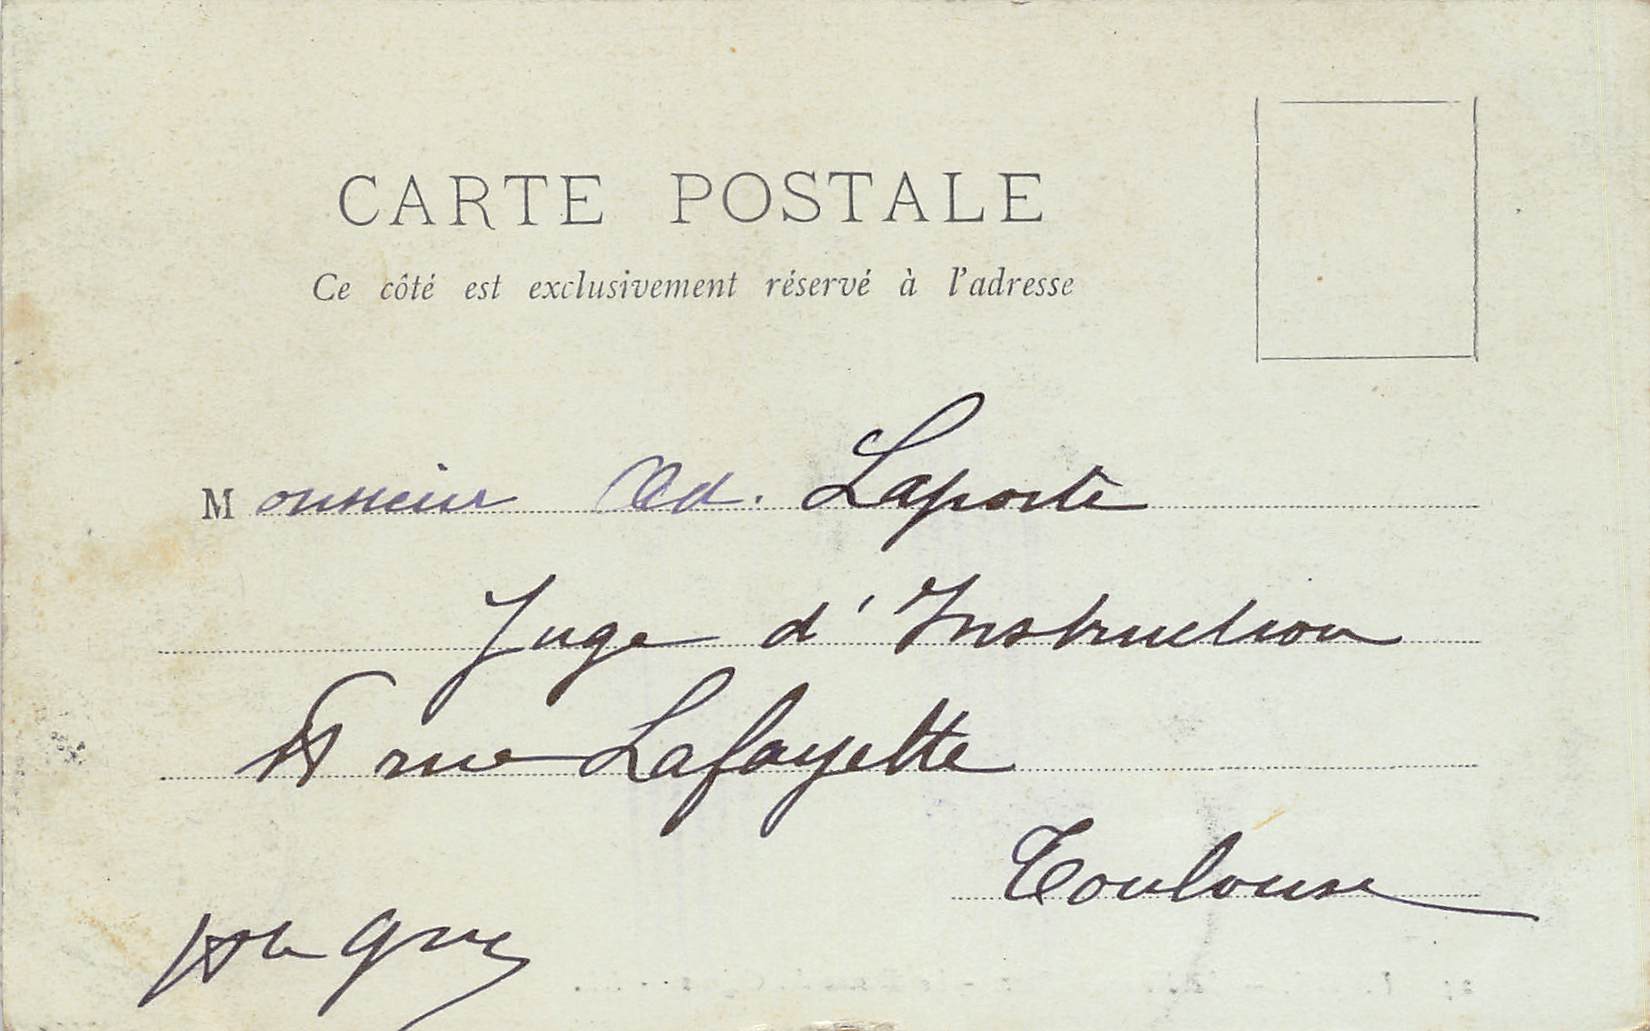 CARTE POSTALE
Ce côté est exclusivement réservé à l'adresse
Monsieur Ad. Laporte
Juge d'Instruction
rue Lafayette
Toulouse